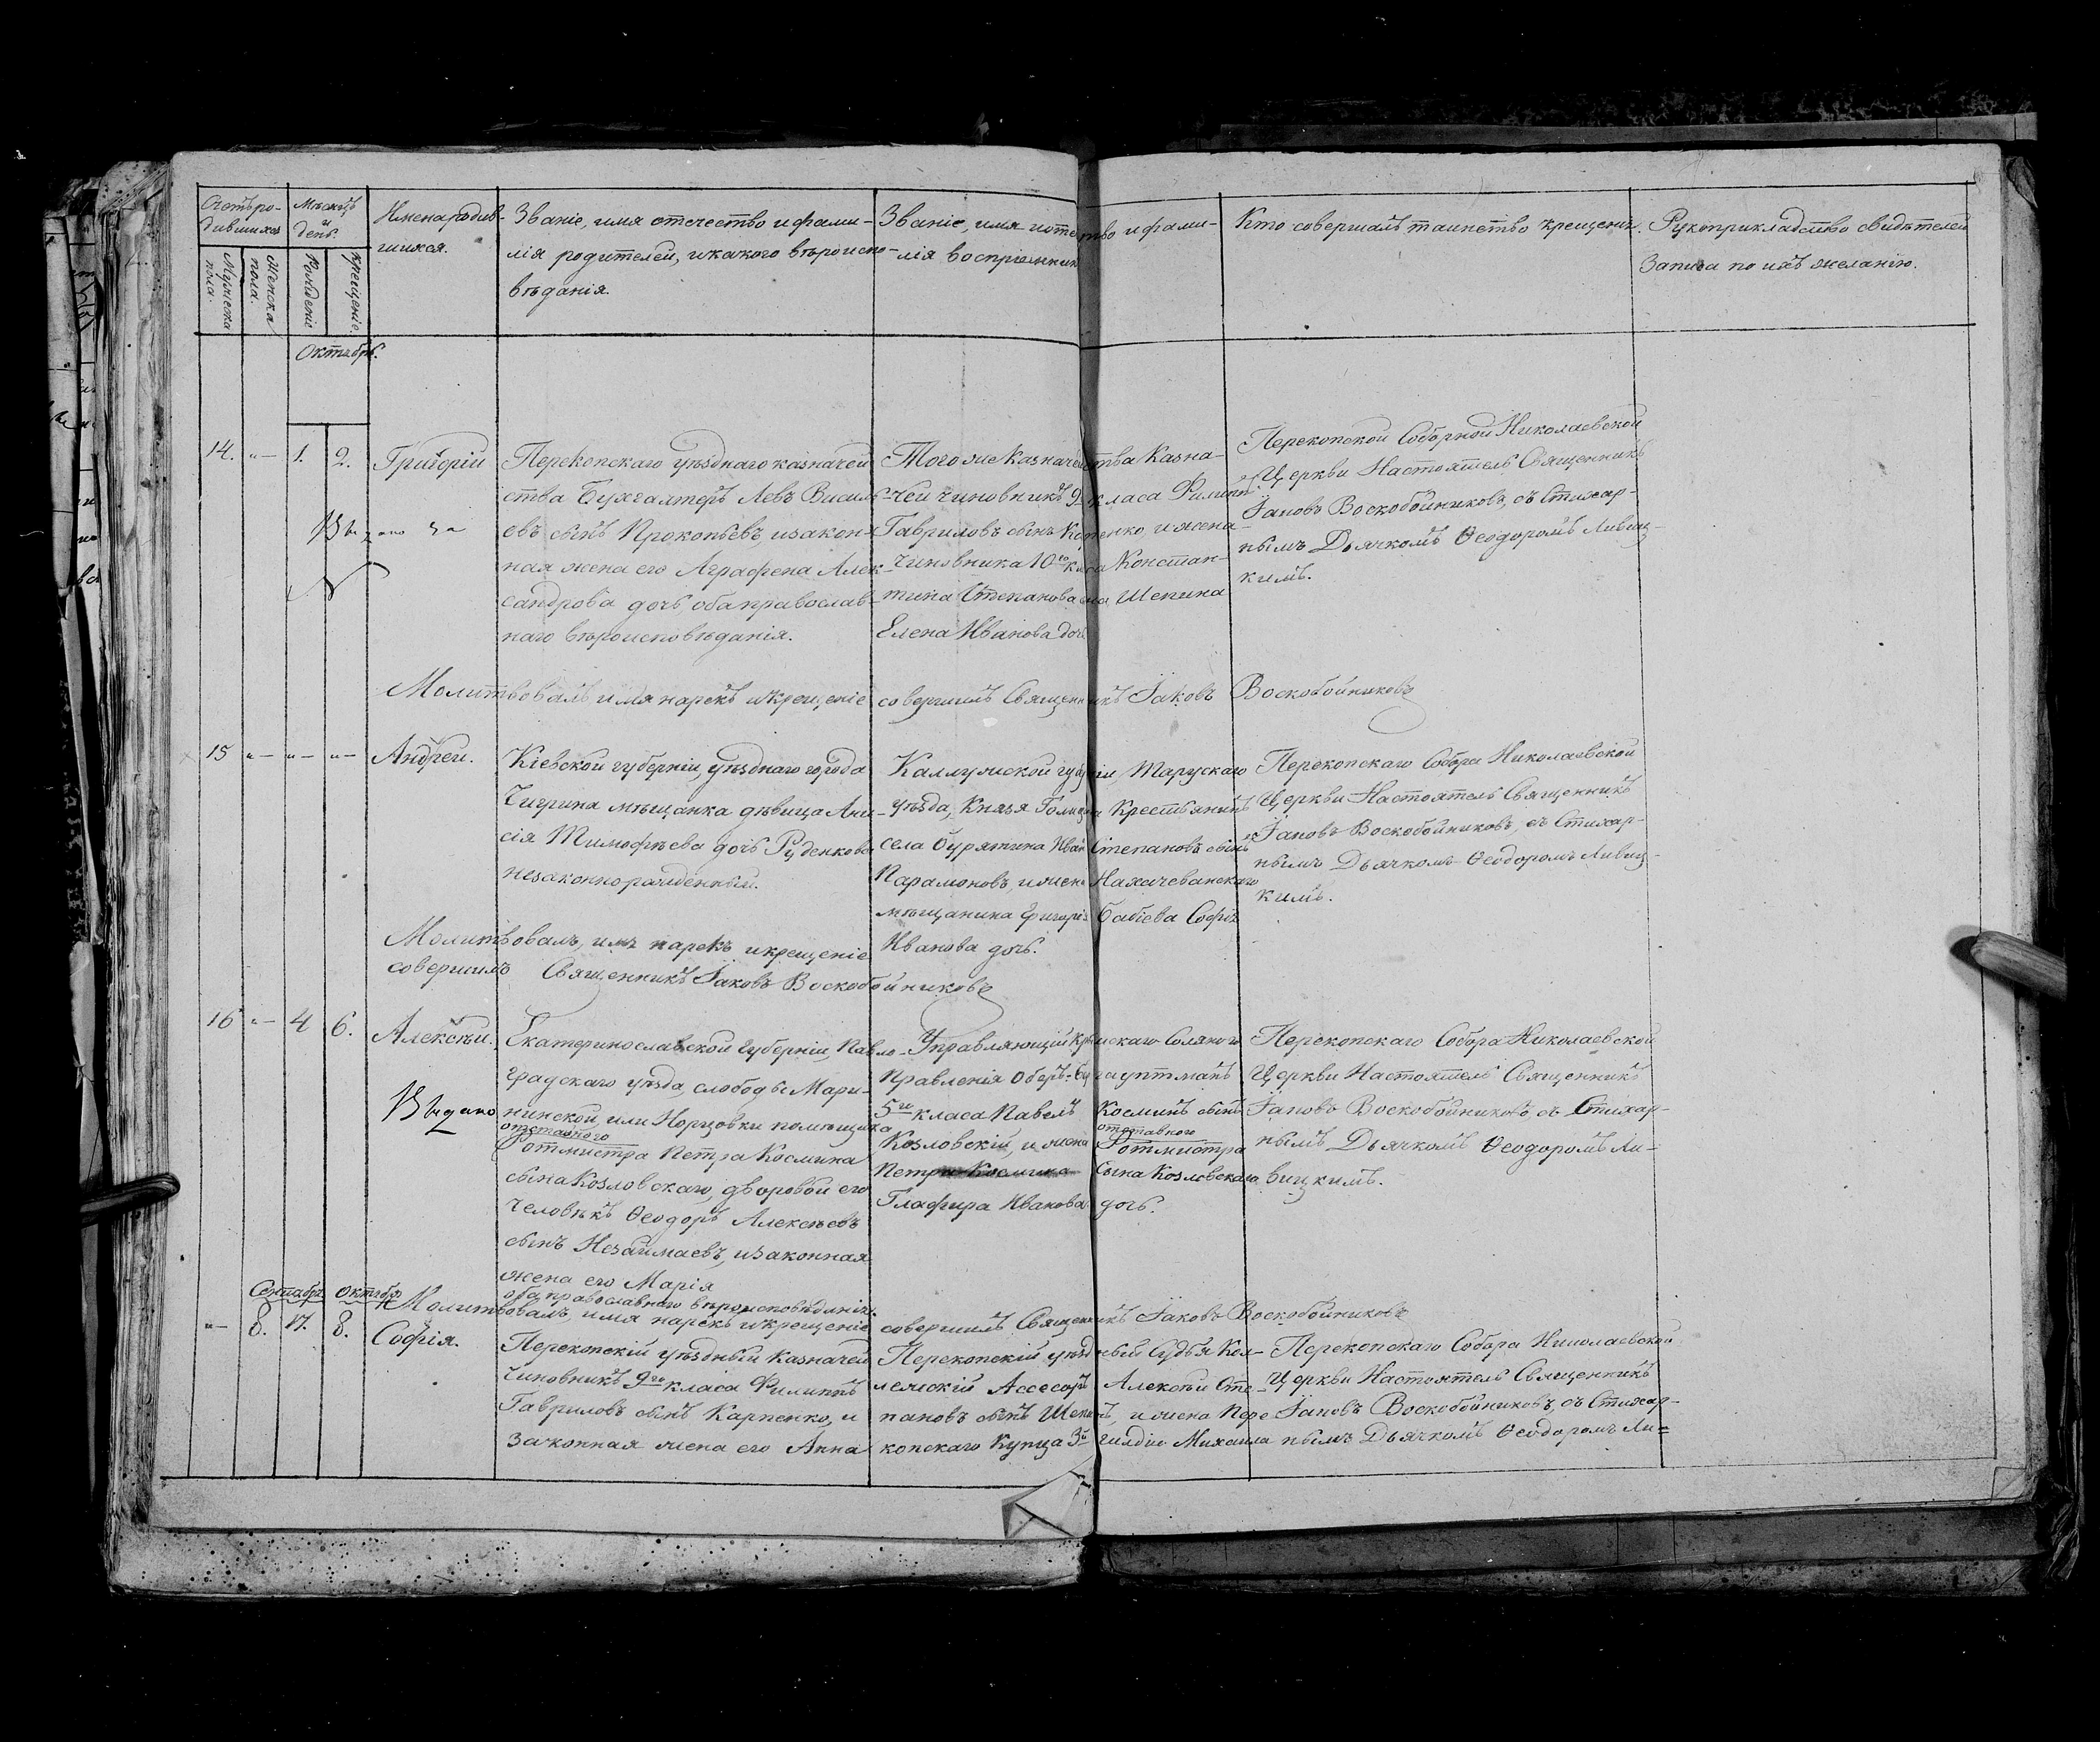 Счетъ ро-
дившихся
Мѣсяцъ
и
день.
Мужеска
пола.
Женска
пола.
Рожденіе
Крещеніе.
Имена родив-
шихся.
Званіе, имя отечество и фами-
лія родителей, и какого вѣроиспо-
вѣданія.
Званіе, имя и отечество и фами-
лія воспріемник
Кто совершалъ таинство крещенія.
Рукоприкладство свидѣтелей
Записа по ихъ желанію.
Октябрь.
14. „— 1. 2. Григорій
Перекопскаго уѣзднаго казначей
ства Бухгалтеръ Левъ Василь-
евъ сынъ Прокопьевъ, и закон-
ная жена его Аграфена Алек-
сандрова дочь оба православ-
наго вѣроисповѣданія.
Того же Казначейства Казна-
чей чиновникъ 9 класа Филиппъ
Гавриловъ сынъ Карпенко, и жена
Чиновника 10го класа Констан-
тина Степанова сына Шепина
Елена Иванова дочь
Перекопской Соборной Николаевской
Церкви Настоятель Священникъ
Іаковъ Воскобойниковъ, съ Стихар-
нымъ Дьячкомъ Ѳеодоромъ Ливиц-
кимъ.
Молитвовалъ имя нарекъ и крещеніе совершилъ Священникъ Іаковъ Воскобойниковъ
15 „— „— „— Андрей.
Кіевской губерніи, уѣзднаго города
Чигрина мѣщанка дѣвица Ани-
сія Тимофѣева дочь Руденкова
незаконнорожденный.
Каллужской губерніи, Тарускаго
уѣзда, Князя Голицына Крестьянинъ
села Бурятина Иванъ Степановъ сынъ
Парамоновъ, и жена Нахичеванскаго
мѣщанина Григорія Бабіева Софія
Иванова дочь.
Перекопскаго Собора Николаевской
Церкви Настоятель Священникъ
Іаковъ Воскобойниковъ, съ Стихар-
нымъ Дьячкомъ Ѳеодоромъ Ливиц-
кимъ.
Молитвовалъ, имя нарекъ и крещеніе
совершилъ Священникъ Іаковъ Воскобойниковъ
16 „— 4 6. Алексѣй.
Выдано
Екатеринославской Губерніи, Павло-
градскаго уѣзда, слободы Мари-
нинской, или Норцовки помѣщика
отставного
Ротмистра Петра Космина
сына Козловскаго, дворовой его
человѣкъ Ѳеодоръ Алексѣевъ
сынъ Незаймаевъ, и законная
жена его Марія
оба православнаго вѣроисповѣданія.
Управляющій Крымскаго Соляного
Правленія Оберъ-Бергауптманъ
5го класа Павелъ Косминъ сынъ
отставного
Козловскій, и жена Ротмистра
Петра Космина Сына Козловскаго
Глафира Иванова дочь.
Перекопскаго Собора Николаевской
Церкви Настоятель Священникъ
Іаковъ Воскобойниковъ съ Стихар-
нымъ Дьячкомъ Ѳеодоромъ Ли-
вицкимъ.
Молитвовалъ, имя нарекъ и крещеніе совершилъ Священникъ Іаковъ Воскобойниковъ
Сентябрь Октябрь
„— 8. 17. 8. Софія.
Перекопскій уѣздный Казначей
Чиновникъ 9го класа Филиппъ
Гавриловъ сынъ Карпенко, и
Законная жена его Анна
Перекопскій уѣздный Судья Кол-
лежскій Ассесоръ Алексѣй Сте-
пановъ сынъ Шепинъ, и жена Пере
копскаго Купца 3й гилдіи Михаила
Перекопскаго Собора Николаевской
Церкви Настоятель Священникъ
Іаковъ Воскобойниковъ, съ Стихар-
нымъ Дьячкомъ Ѳеодоромъ Ли=